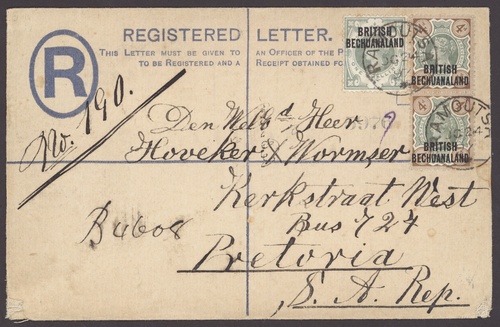 REGISTERED LETTER.
THIS LETTER MUST BE GIVEN TO AN OFFICER OF THE P
TO BE REGISTERED AND A RECEIPT OBTAINED FO
R
BRITISH
BECHUANALAND
4
BRITISH
BECHUANALAND
RAMOUTSA
4
BRITISH
BECHUANALAND
RAMOUTSA
No. 190.
Den Heer
Hoveker & Wormser
Kerkstraat West
Bus 727
Pretoria
S. A. Rep.
B4608